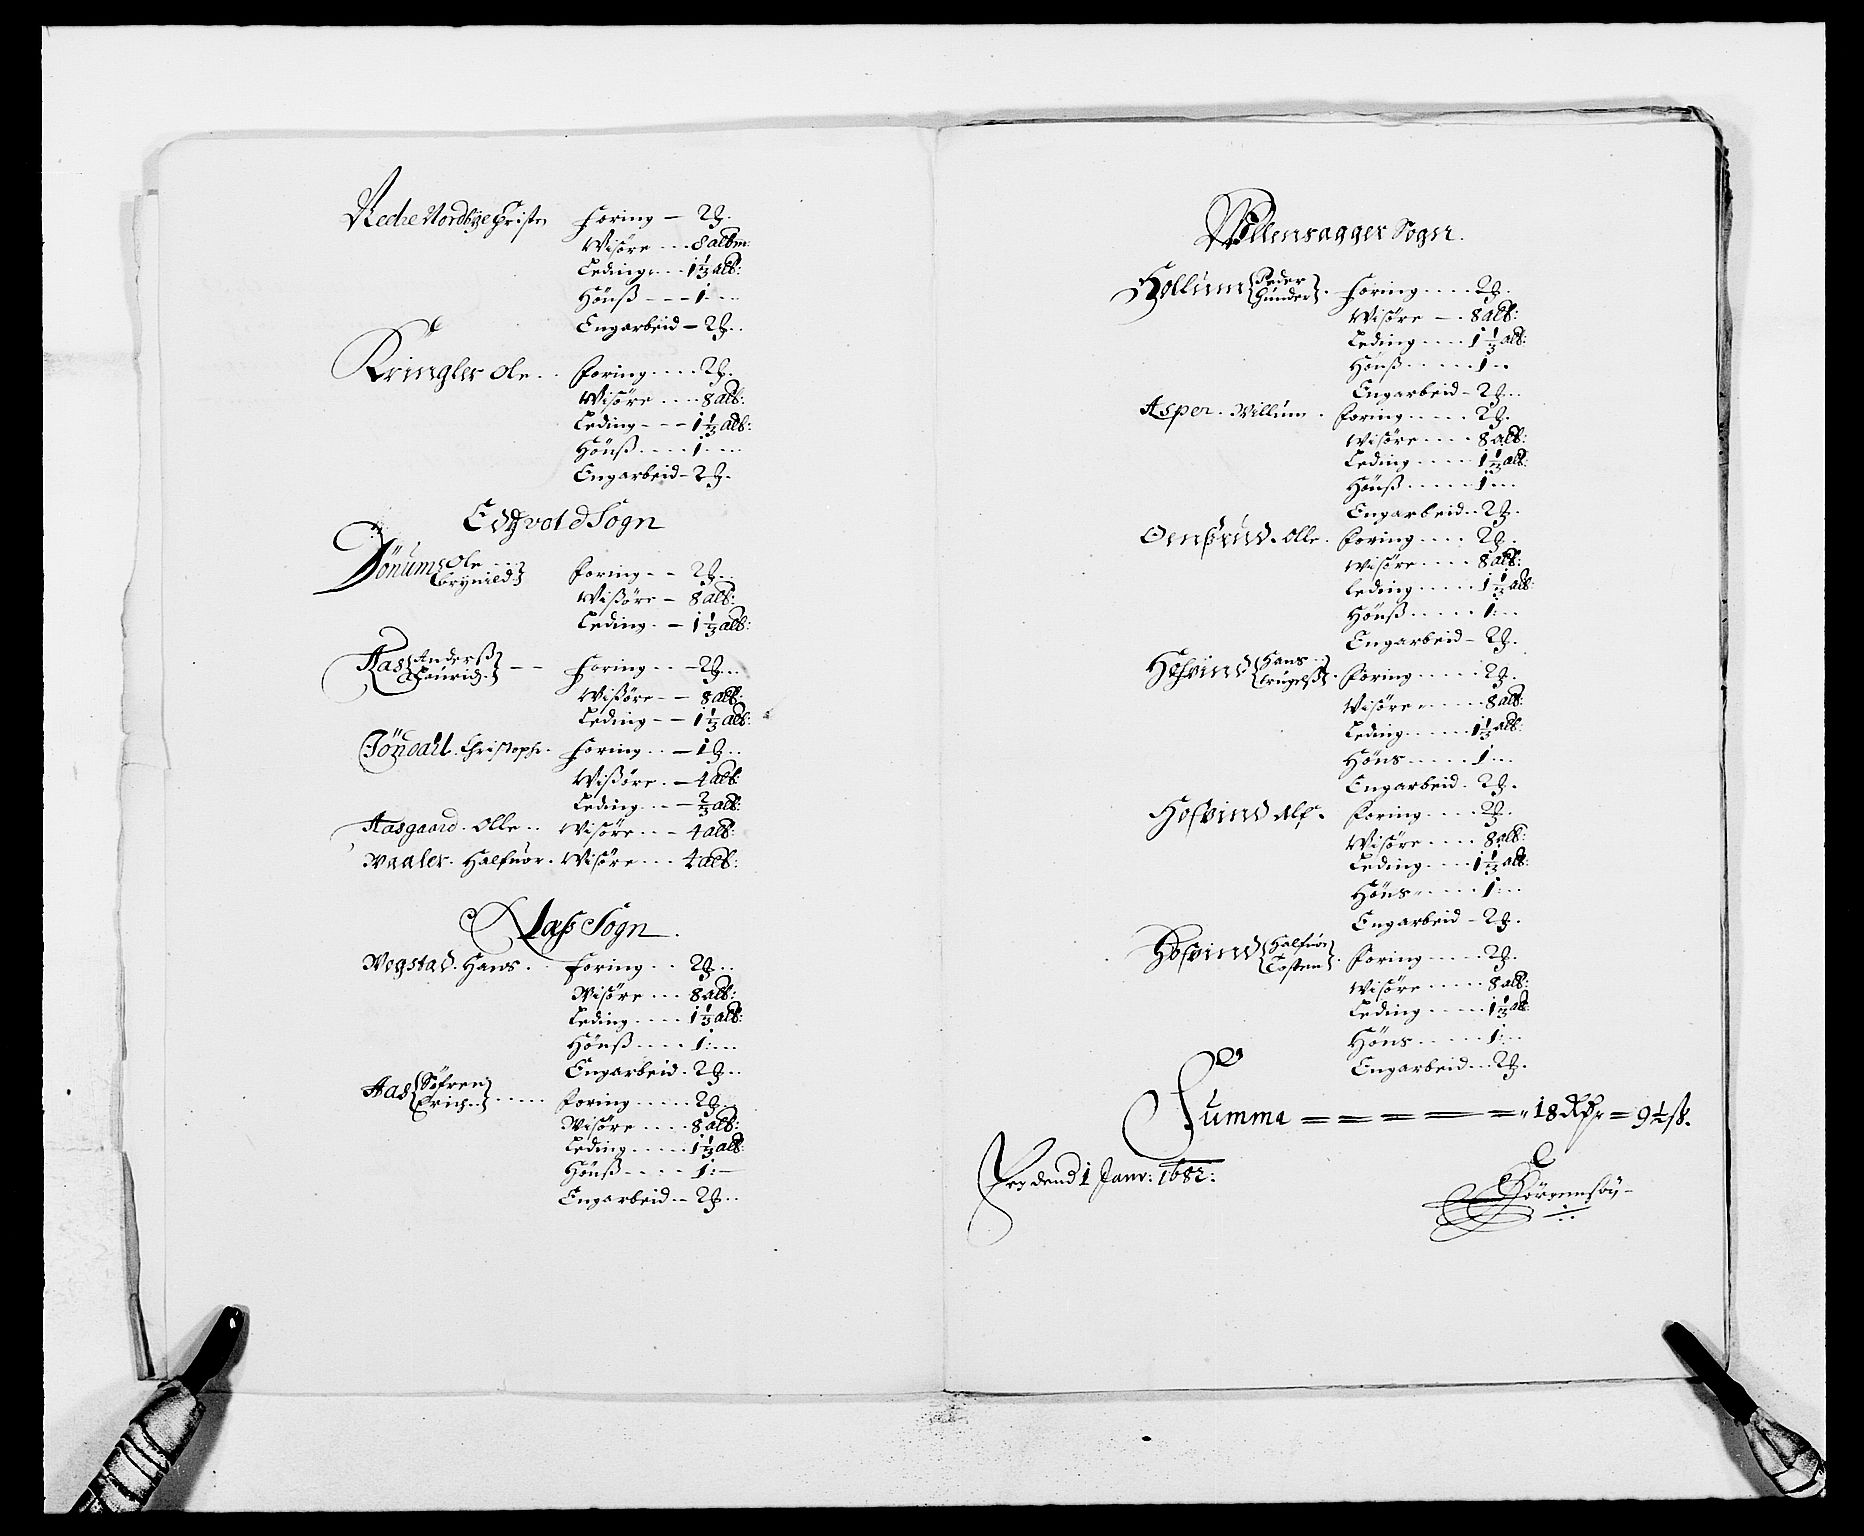 Nedre Nordbye Christen foring — 2ß.
Wisöre ... 8 albm:
Leding ... 1⅓ alb:
Hönß - - - 1. ...
Engarbeid — 2ß..
Kringler Ole .. foring .... 2ß.
Wisöre .... 8 alb:
Leding - - - 1⅓ alb:
Hönß .... 1. ...
Engarbeid — 2ß.
Edtzvold Sogn
Dönum {Ole ... Brynild} foring - - 2ß...
Wißöre — 8 alb:
Leding . — 1⅓ alb:
Aas {Anderß Lauridz.} - - foring .. — 2ß...
Wißöre - - 8 alb:
Leding - - 1⅓ alb:
Jöndall . Christopher . foring .. — 1ß..
Wißöre . — 4 alb:
Leding .. — ⅔ alb:
Aasgaard . Olle .. Wisöre .. - 4 alb:
Waaler . Halfuor . Wisöre ... 4 alb:
Næss Sogn .
Wegstad . Hans .. foring .. 2ß...
Wisöre ... 8 alb:
Leding .... 1⅓ alb:
Hönß .... 1: ...
Engarbeid . 2ß..
Aas {Söfren Erich..} ..... foring ..... 2ß...
Wisöre .... 8 alb:
Leding ..... 1⅓ alb:
Hönß ..... 1: —
Engarbeid .. 2ß...
Ullensagger Sogn .
Hollum {Peder Gunder} . foring .... 2ß.
Wisöre — . 8 alb:
Leding .... 1⅓ alb:
Hönß ..... 1 ..
Engarbeid — 2ß...
Asper . Willum . foring ..... 2ß.
Wisöre .... 8 alb:
Leding .... 1⅓ alb:
Hönß ..... 1 ...
Engarbeid .. 2ß.
Olle . foring .... 2ß..
Wisöre .... 8 alb:
Leding .... 1⅓ alb:
Hönß ..... 1: ...
Engarbeid — 2ß.
Hofvind {Hans .. Trugelß} . foring ..... 2ß.
Wisöre ..... 8 alb:
Leding ...... 1⅓ alb:
Höns ..... 1: ...
Engarbeid . 2ß.
Hofvind Alf . foring .... 2ß.
Wisöre .... 8 alb:
Leding .... 1⅓ alb:
Höns ..... 1: ...
Engarbeid — 2ß.
Hofvind {Halfuor Tosten} . foring ..... 2ß.
Wisöre ..... 8 alb:
Leding ..... 1⅓ alb
Höns ..... 1: ...
Engarbeid ... 2ß.
Summa = = = = = 18 Rdr = 9½ ß.
dend 1 Janv: 1682:
Sörrensöy